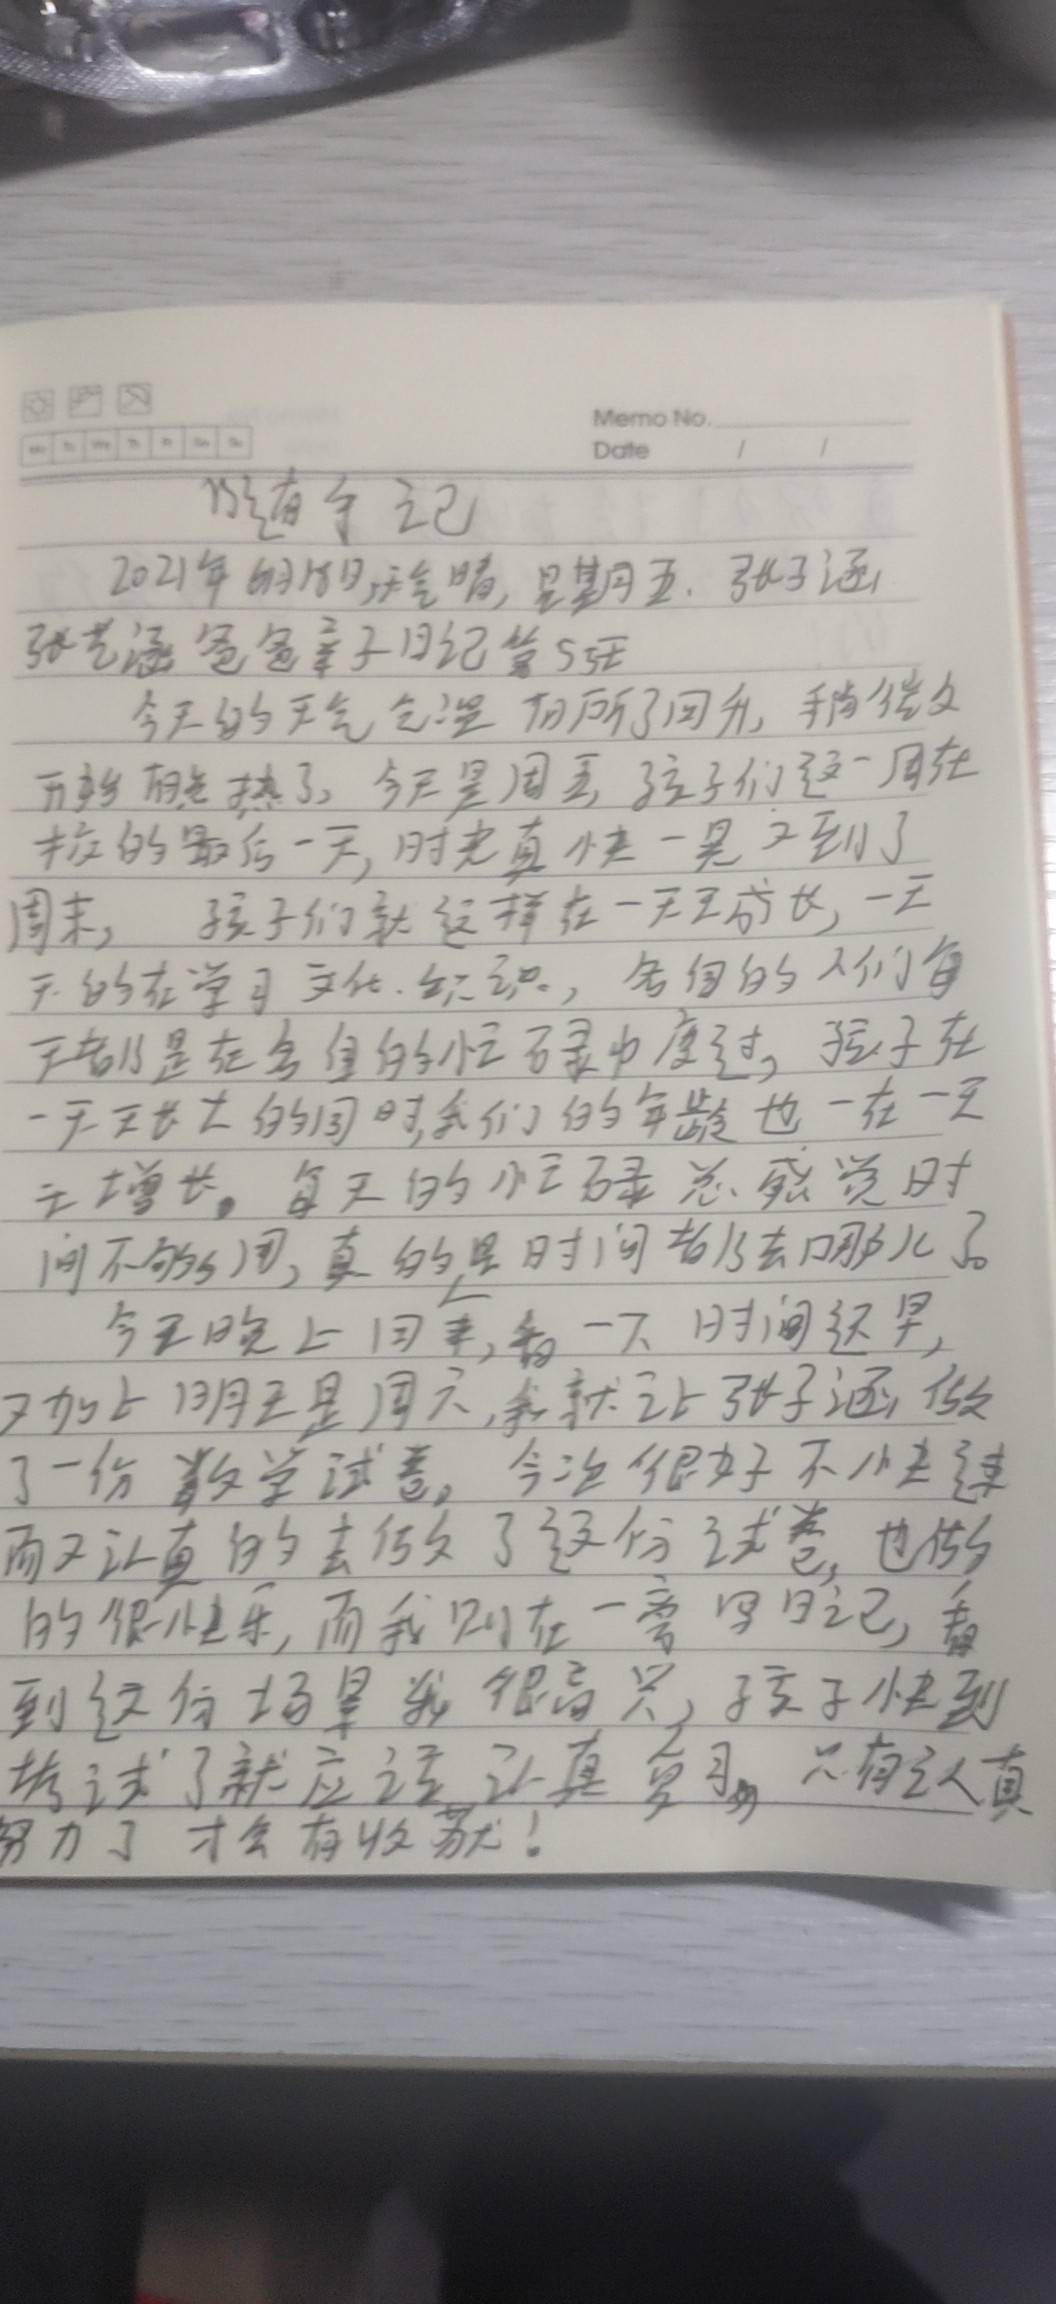 Memo No.
Date / /
随手记
2021年6月18日,天气晴,星期五.张子涵
张艺涵爸爸亲子日记第5天
今天的天气气温有所了回升,稍微又
开始有些热了。今天是周五,孩子们这一周在
校的最后一天,时光真快一晃又到了
周末,孩子们就这样在一天天成长,一天
天的在学习文化.知识.,各自的人们每
天都是在各自的忙碌中度过,孩子在
一天天长大的同时,我们的年龄也一在一天
天增长。每天的忙碌总感觉时
间不够用,真的是时间都去哪儿了。
今天晚上回来,看一下时间还早,
又加上明天是周六,我就让张子涵做
了一份数学试卷。今次很好不快速
而又认真的去做了这份试卷,也做
的很快乐,而我则在一旁写日记,看
到这份场景我很高兴,孩子快到
考试了就应该认真复习,只有认真
努力了才会有收获!